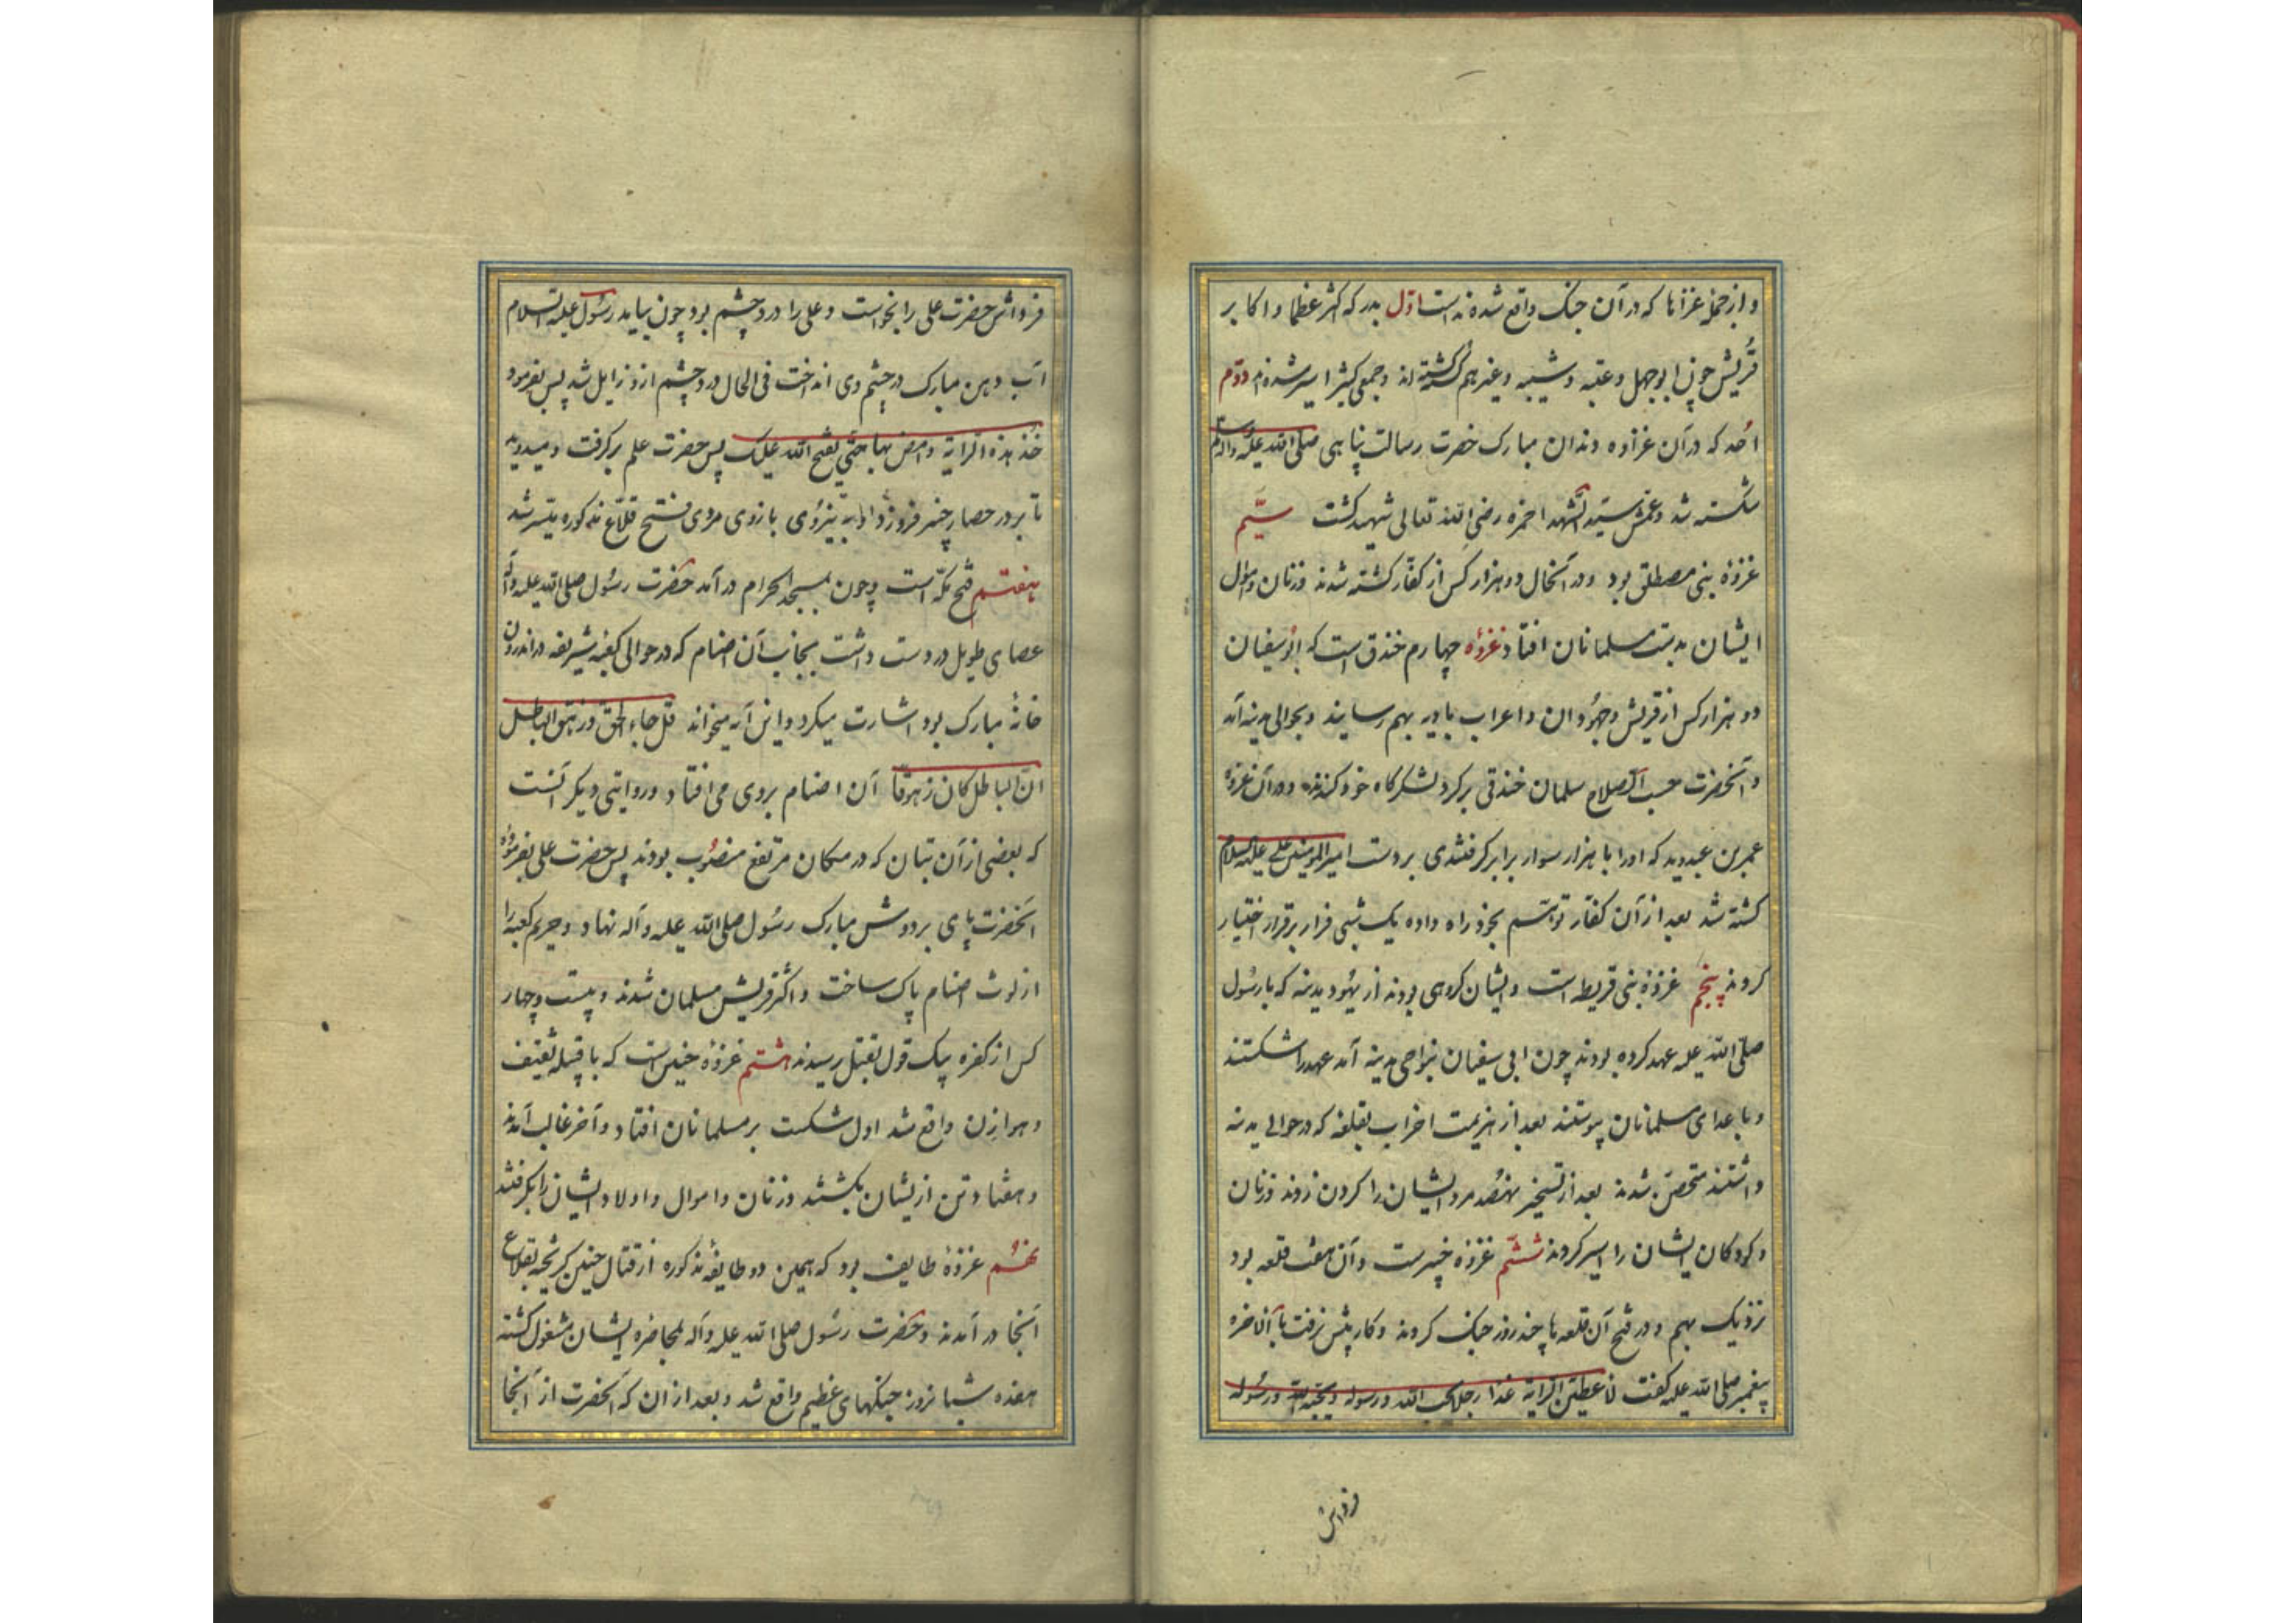 و از جمله غزاها که در آن جنک واقع شده نه است اوّل بدر که اکثر عظما و اکابر
قُریش چون ابوجهل و عتبه و شیبه و غیرهم کشته‌اند و جمعی کثیر اسیر شده‌اند دوّم
اُحد که در آن غزاوه دندان مبارک حضرت رسالت پناهی صلی الله علیه و آله وسلم
شکسته شد و عمّش سیّد الشّهدا حمزه رضی الله تعالی شهید کشت سیّم
غزوهٔ بنی مصطلق بود و در آنحال دو هزار کس از کفّار کشته شدند و زنان و اموال
ایشان بدست مسلمانان افتاد غزوُه چهارم خندق است که ابُوسفیان
دو هزار کس از قریش و جهُودان و اعراب بادیه بهم رسانید و بحوالی مدینه آمد
و آنحضرت حسب الصلاح سلمان خندقی بر کرد لشکرکاه خود کندند و در آن غزوه
عمر بن عبدود که او را با هزار سوار برابر کرفتندی بر دست امیرالمومنین علی علیه السلام
کشته شد بعد از آن کفّار توهّم بخود راه داده یک شبی فرار بر قرار اختیار
کردند پنجم غزوهٔ بنی قریظه است و ایشان کروهی بودند از یهُود مدینه که با رسُول
صلّی الله علیه عهد کرده بودند چون ابی سفیان بنواحی مدینه آمد عهد را شکستند
و با عدای مسلمانان پیوستند بعد از هزیمت احزاب بقلعه که در حوالی مدینه
داشتند متحصّن شدند بعد از تسخیر نهصُد مرد ایشان را کردن زدند و زنان
و کودکان ایشان را اسیر کردند ششّم غزوه خیبرست و آن هفت قلعه بود
نزدیک بهم و در فتح آن قلعه‌ها چند روز جنک کردند و کار پیش نرفت تا بالاخره
پیغمبر صلی الله علیه کفت لاعطین الرایة غدا رجلا یحب الله و رسوله و یحبه الله و رسُوله
فرداش
فرداش حضرت علی را بخواست و علی را درد چشم بود چون بیاید رسُول علیه السلام
آب دهن مبارک در چشم وی انداخت فی الحال درد چشم از و زایل شد پس بفرمود
خُذ هذه الرایة و امض بها حتی یفتح الله علیک پس حضرت علم بر کرفت و میدوید
تا بر در حصار خیبر فرو زد و به نیرُوی بازوی مردی فتح قلاع مذکوره میسر شد
هفتم فتح مکّه است و چون بمسجد الحرام در آمد حضرت رسُول صلی الله علیه و آله
عصای طویل در دست داشت بجانب آن اصنام که در حوالی کعبهٔ شریفه در اندرون
خانهٔ مبارک بود اشارت میکرد و این آیه میخواند قل جاء الحق و زهق الباطل
انّ الباطل کان زهوقا آن اصنام بروی می افتاد و روایتی دیکر آنست
که بعضی از آن بتان که در مکان مرتفع منصُوب بودند پس حضرت علی بفرمُوده
آنحضرت پای بر دوش مبارک رسُول صلی الله علیه و آله نهاد و حریم کعبه را
از لوث اصنام پاک ساخت و اکثر قریش مسلمان شدند و بیست و چهار
کس از کفره بیک قول بقتل رسیدند هشتم غزوهٔ حنین است که با قبیله ثقیف
و هوازن واقع شد اول شکست بر مسلمانان افتاد و آخر غالب آمدند
و هفتاد تن از یشان بکشتند و زنان و اموال و اولاد ایشان را بکرفتند
نهُم غزوهٔ طایف بود که همین دو طایفهٔ مذکوره از قتال حنین کریخته بقلاع
آنجا در آمدند و حضرت رسُول صلی الله علیه و آله بمحاصره ایشان مشغول کشته
هفده شبانروز جنکهای عظیم واقع شد و بعد از ان که آنحضرت از آنجا